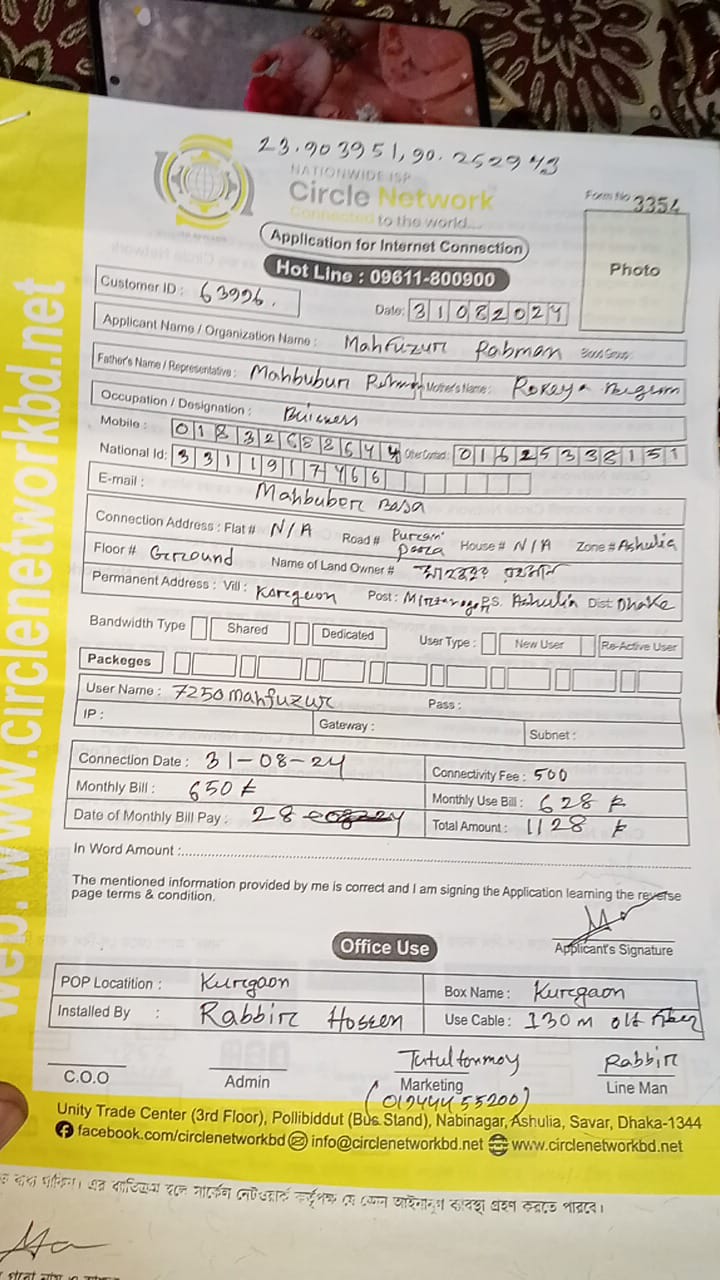 23.903951, 90.252943
NATIONWIDE ISP
Circle Network
Connected to the world...
Form No 3354
Application for Internet Connection
Photo
Hot Line : 09611-800900
Customer ID : 63996.
Date: 31082024
Applicant Name / Organization Name : Mahfuzur Rahman Blood Group:
Father's Name / Representative : Mahbubur Rahman Mother's Name : Rokeya Begum
Occupation / Designation : Buicness
Mobile : 01832688644 Other Contact : 01625338151
National Id: 3311917466
E-mail :
Mahbuber Basa
Connection Address : Flat # N/A Road # Puran Para House # N/A Zone # Ashulia
Floor # Ground Name of Land Owner # মাহবুবুর রহমান
Permanent Address : Vill : Korgaon Post : P.S. Ashulia Dist: Dhake
Bandwidth Type Shared Dedicated User Type : New User Re-Active User
Packeges
User Name : 7250mahfuzur Pass :
IP : Gateway : Subnet :
Connection Date : 31-08-24 Connectivity Fee : 500
Monthly Bill : 650 ৳ Monthly Use Bill : 628 ৳
Date of Monthly Bill Pay : 28 Total Amount : 1128 ৳
In Word Amount :
The mentioned information provided by me is correct and I am signing the Application learning the reverse
page terms & condition.
Applicant's Signature
Office Use
POP Locatition : Kurgaon Box Name : Kurgaon
Installed By : Rabbir Hossen Use Cable : 130m old fiber
Tutul tonmoy Rabbir
C.O.O Admin Marketing Line Man
(01944455200)
Unity Trade Center (3rd Floor), Pollibiddut (Bus Stand), Nabinagar, Ashulia, Savar, Dhaka-1344
facebook.com/circlenetworkbd info@circlenetworkbd.net www.circlenetworkbd.net
web: www.circlenetworkbd.net
বাধ্য থাকিব। এর ব্যতিক্রম হলে সার্কেল নেটওয়ার্ক কর্তৃপক্ষ যে কোন আইনানুগ ব্যবস্থা গ্রহণ করতে পারবে।